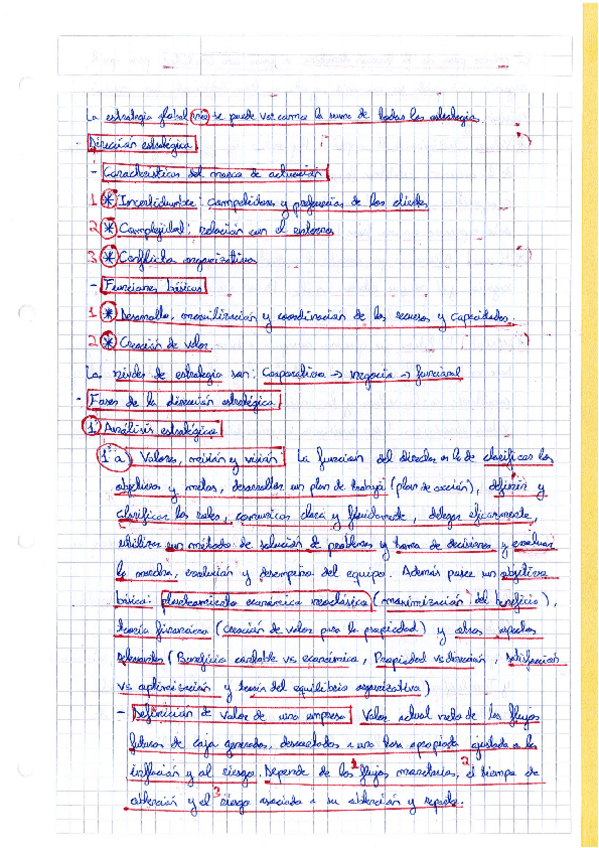 La estrategia global no se puede ver como la suma de todas las estrategias.
Dirección estratégica
- Características del marco de actuación
1 * Incertidumbre: competidores y preferencias de los clientes
2 * Complejidad: relación con el entorno
3 * Conflictos organizativos
- Funciones básicas
1 * Desarrollo, movilización y coordinación de los recursos y capacidades.
2 * Creación de valor
Los niveles de estrategia son: Corporativa → negocio → funcional
- Fases de la dirección estratégica
1 Análisis estratégico
1ª a) Valores, misión y visión: La función del director es la de clarificar los
objetivos y metas, desarrollar un plan de trabajo (plan de acción), definir y
clarificar los roles, comunicar clara y fluidamente, delegar eficazmente,
utilizar un método de solución de problemas y toma de decisiones y evaluar
la marcha, evolución y desempeño del equipo. Además posee un objetivo
básico: planteamiento económico neoclásico (maximización del beneficio),
teoría financiera (creación de valor para la propiedad) y otros aspectos
relevantes (Beneficio contable vs económico, Propiedad vs dirección, satisfacción
vs optimización y teoría del equilibrio organizativo)
- Definición de valor de una empresa Valor actual neto de los flujos
futuros de caja generados, descontados a una tasa apropiada ajustada a la
inflación y al riesgo. Depende de los 1 flujos monetarios, 2 el tiempo de
obtención y el 3 riesgo asociado a su obtención y reparto.